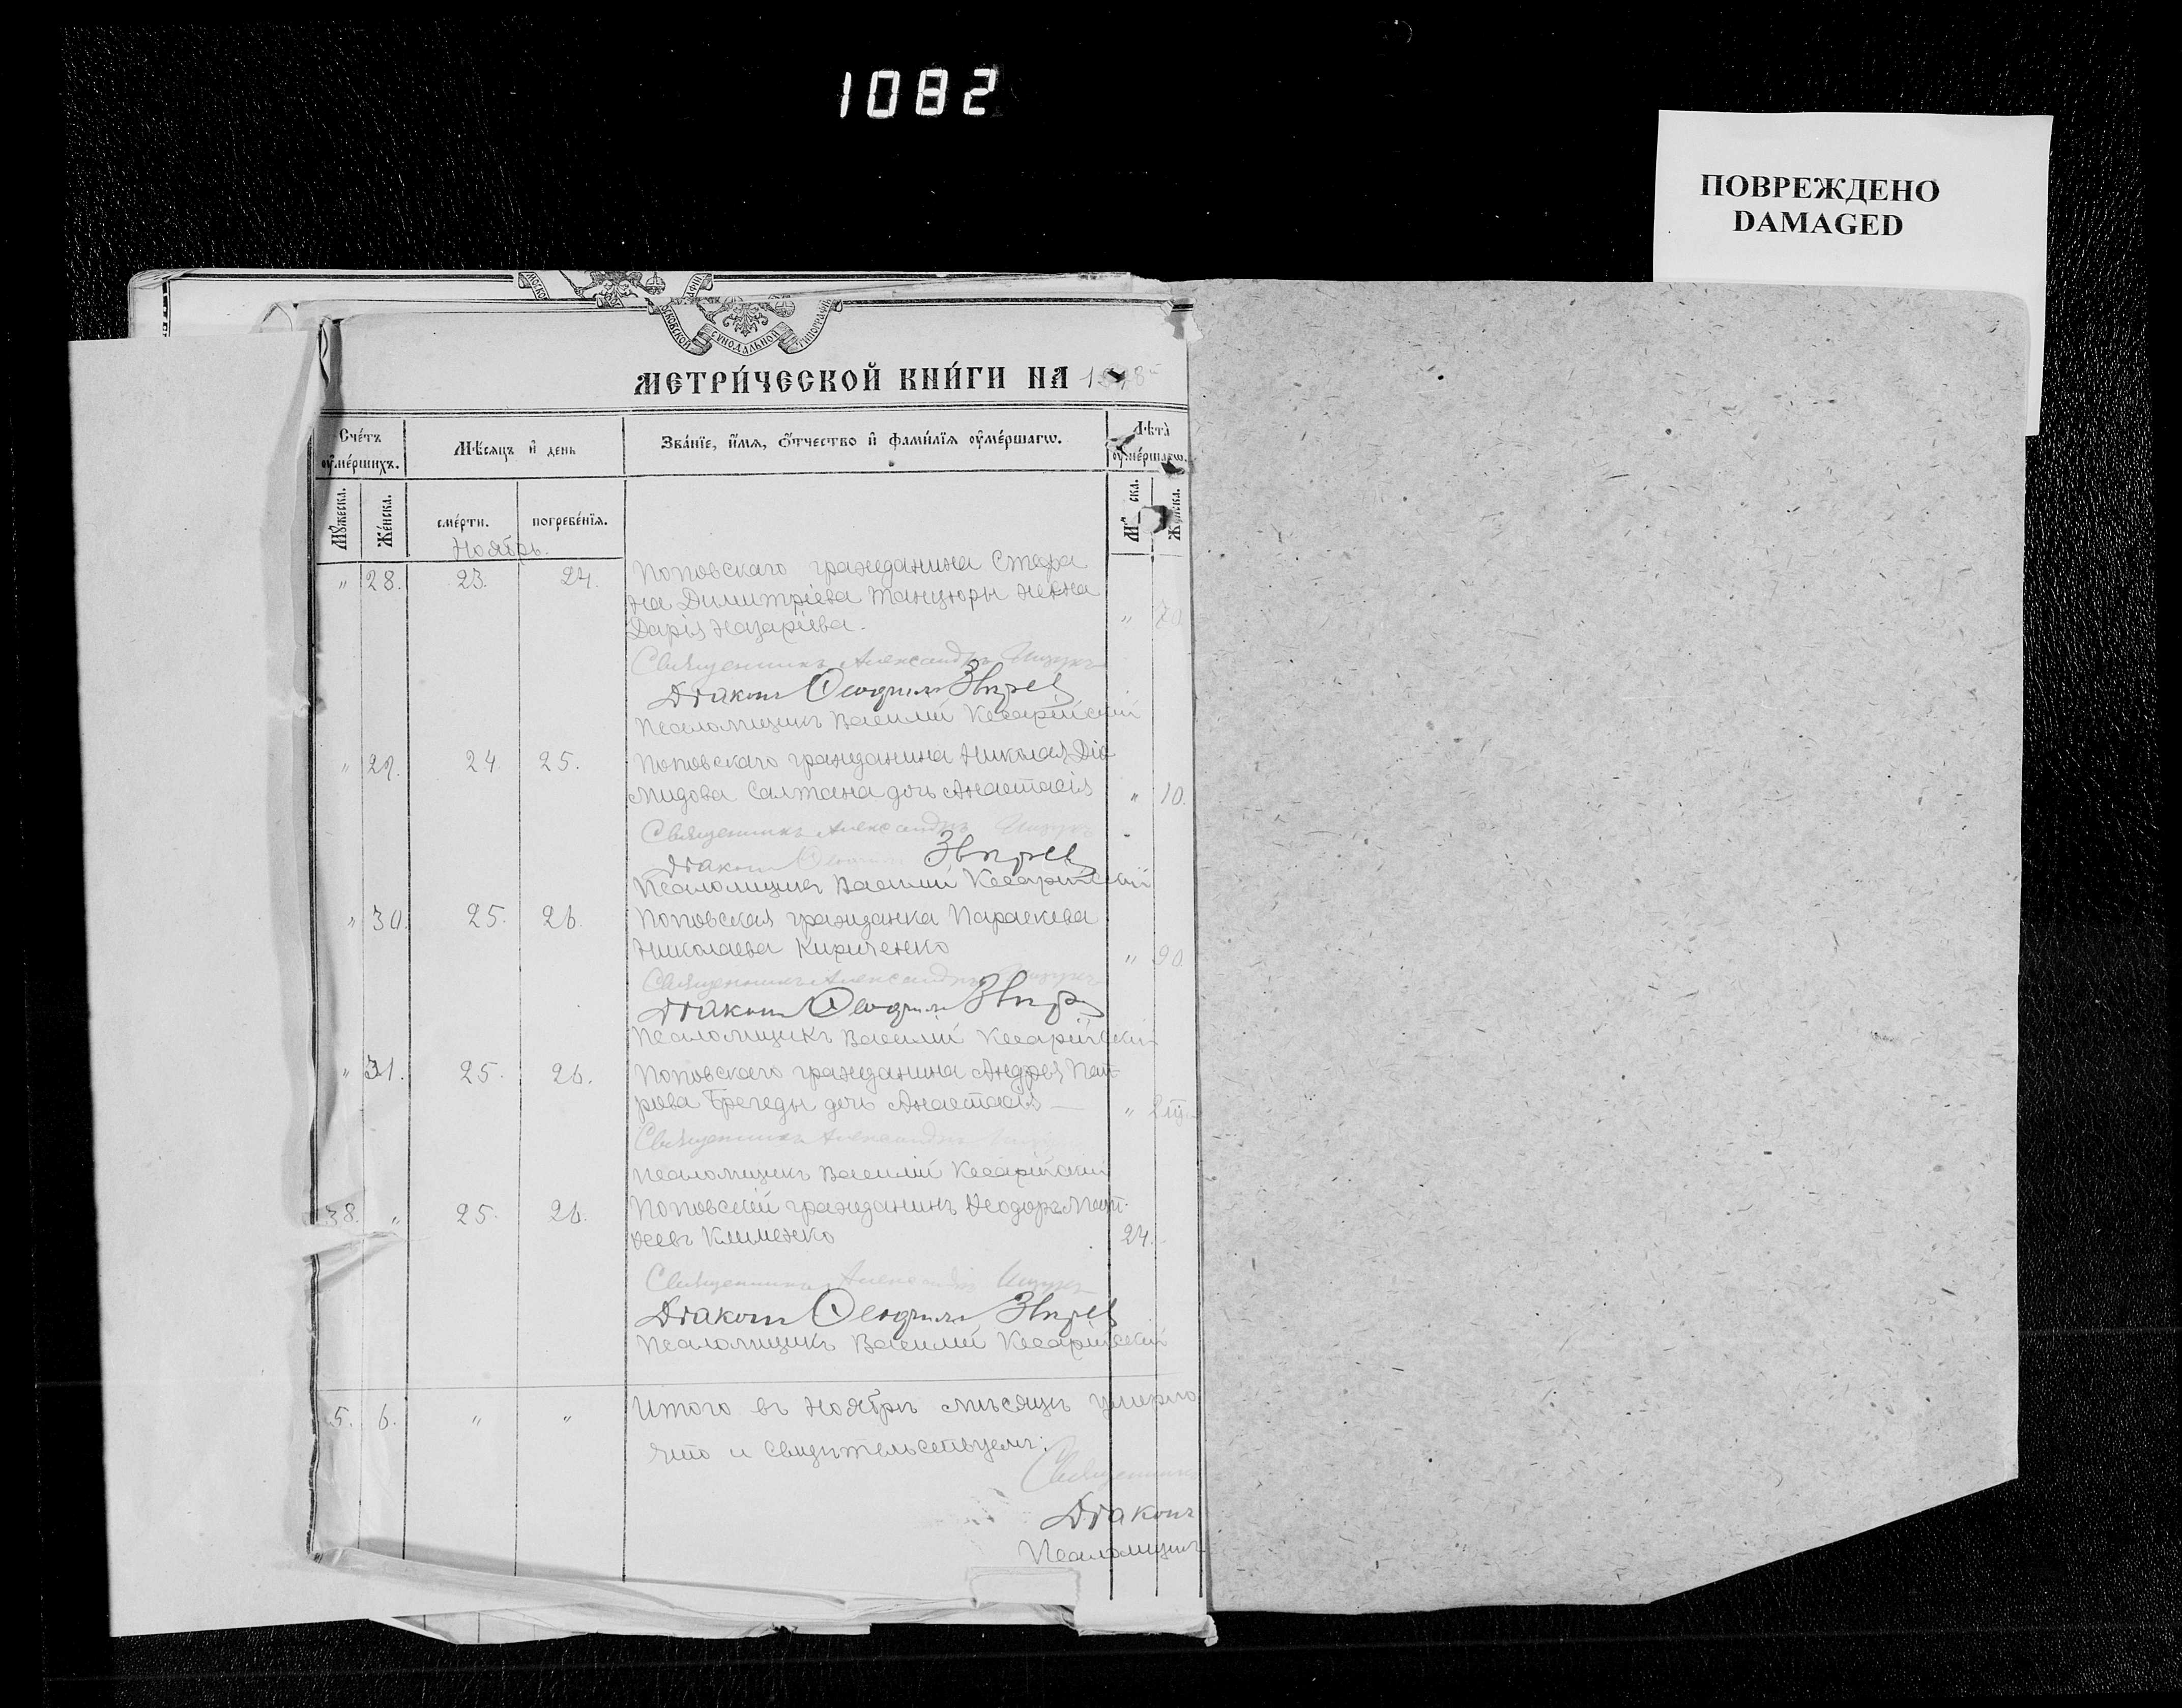 1082
ПОВРЕЖДЕНО
DAMAGED
МОСКОВСКОЙ СѴНОДАЛЬНОЙ ТИПОГРАФІИ
МЕТРИ́ЧЕСКОЙ КНИ́ГИ НА
Сче́тъ оу҆ме́ршихъ.
Мѣ́сяцъ и҆ день
Зва́нїе, и҆́мя, ѻ҆́тчество и҆ фами́лїя оу҆ме́ршагѡ.
Лѣта̀ оу҆ме́ршагѡ.
Мꙋ́жеска.
Же́нска.
сме́рти.
погребе́нїя.
Ноябрь.
" 28. 23. 24. Поповскаго гражданина Стефа
на Димитріева Танцюры жена
Дарья Назаріева. " 70
Священникъ Александръ
Діаконъ Ѳеофилъ Звѣрев
Псаломщикъ Василій Кесарійскій
" 29. 24 25. Поповскаго гражданина Николая Діо
мидова Салтана дочь Анастасія " 10.
Священникъ Александръ
Діаконъ Звѣрев
Псаломщикъ Василій Кесарійскій
" 30. 25. 26. Поповская гражданка Параскева
Николаева Кириченко " 90
Священникъ Александръ
Діаконъ Ѳеофилъ Звѣр
Псаломщикъ Василій Кесарійскій
" 31. 25. 26. Поповскаго гражданина Андрея Пет
рова Брегеды дочь Анастасія "
Священникъ Александръ
Псаломщикъ Василій Кесарійскій
38. " 25. 26. Поповскій гражданинъ Ѳеодоръ Мат
ѳеевъ Клименко 24.
Священникъ Александръ
Діаконъ Ѳеофилъ Звѣрев
Псаломщикъ Василій Кесарійскій
5. 6. " " Итого въ Ноябрѣ мѣсяцѣ умерло
что и свидѣтельствуемъ:
Священникъ
Діаконъ
Псаломщикъ